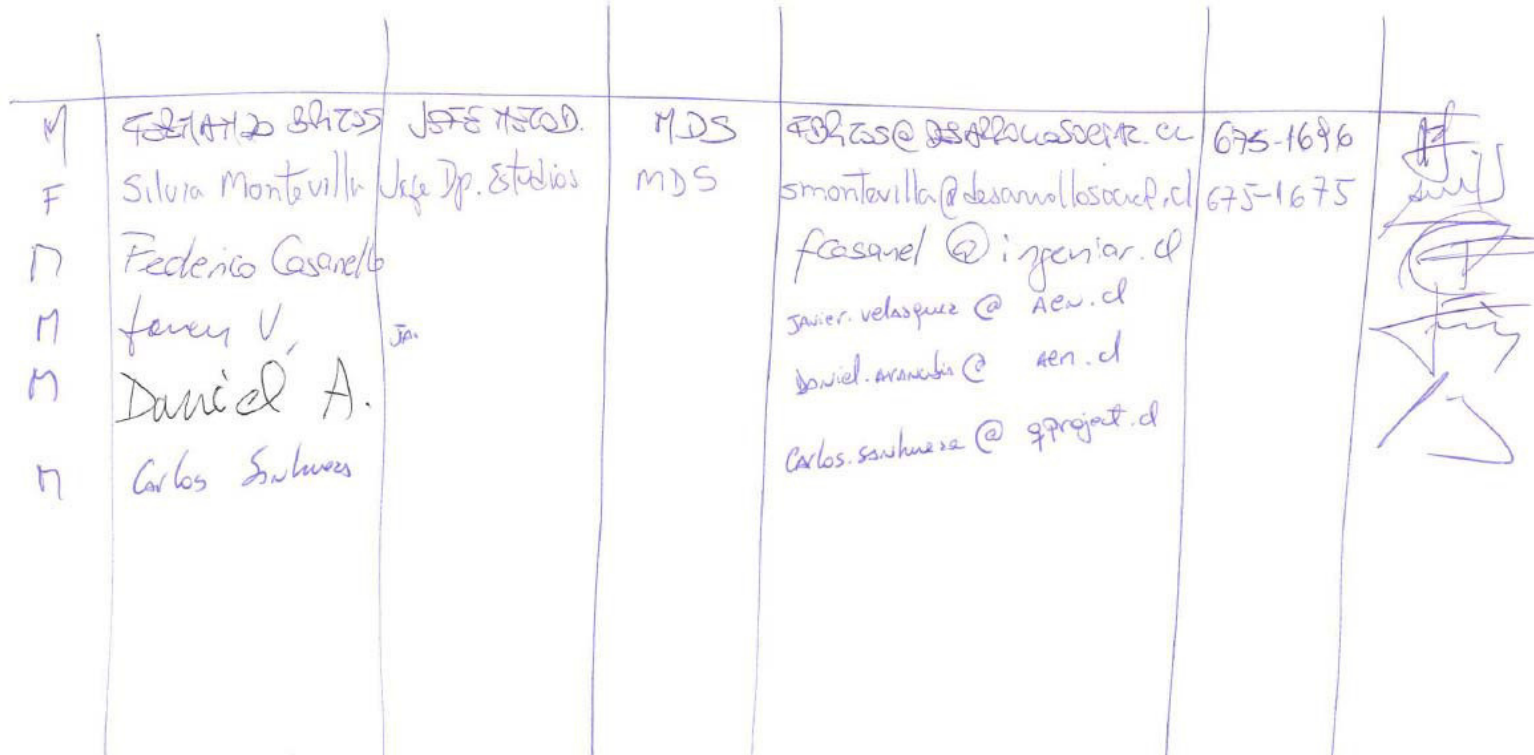 M FERNANDO BRITOS JEFE METOD. MDS FBRITOS@DESARROLLOSOCIAL.CL 675-1696
F Silvia Montevilla Jefe Dp. Estudios MDS smontevilla@desarrollosocial.cl 675-1675
M Federico Casanello fcasanel@ingeniar.cl
M V. JA. Javier.velasquez@AEN.cl
M Daniel A. Daniel.@AEN.cl
M Carlos Sanhueza Carlos.sanhueza@qproject.cl